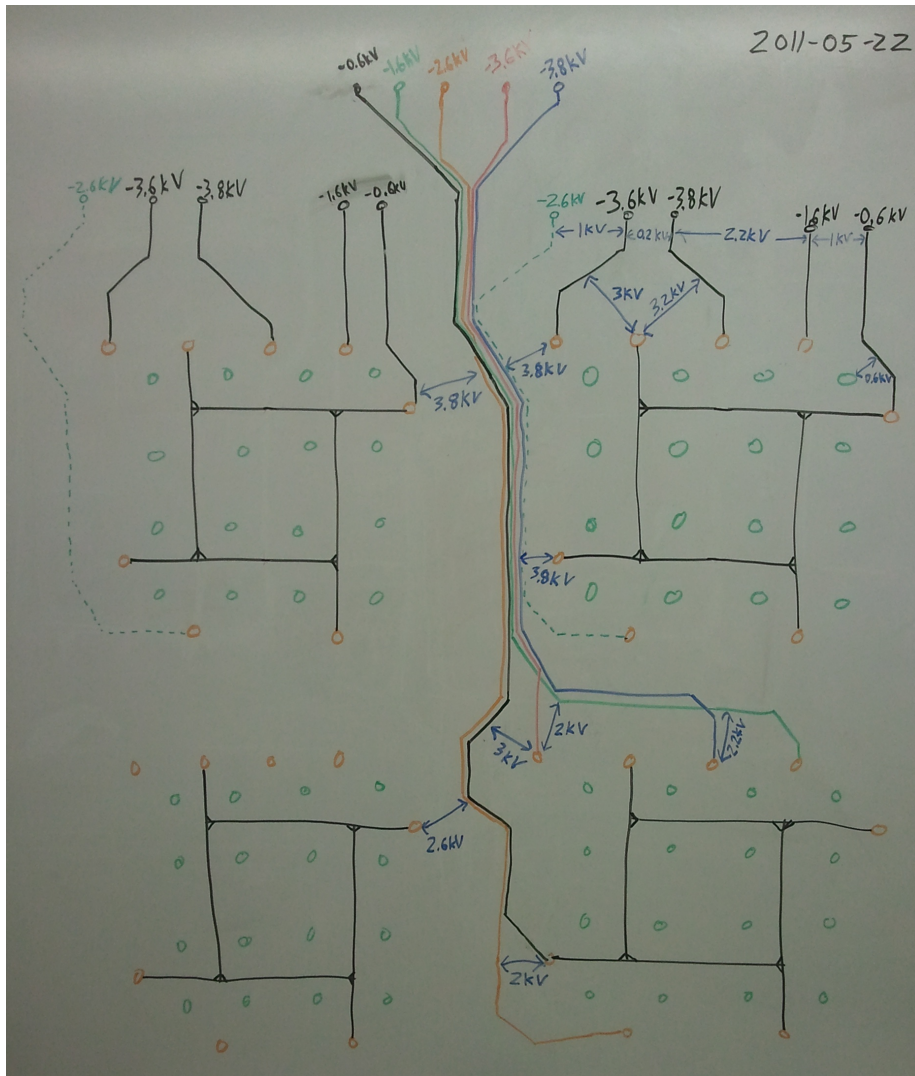 2011-05-22
-0.6kV -1.6kV -2.6kV -3.6kV -3.8kV
-2.6kV -3.6kV -3.8kV -1.6kV -0.6kV
-2.6kV -3.6kV -3.8kV -1.6kV -0.6kV
1kV 0.2kV 2.2kV 1kV
3kV 3.2kV
3.8kV 3.8kV 0.6kV
3.8kV
2kV
3kV 2.2kV
2.6kV
2kV